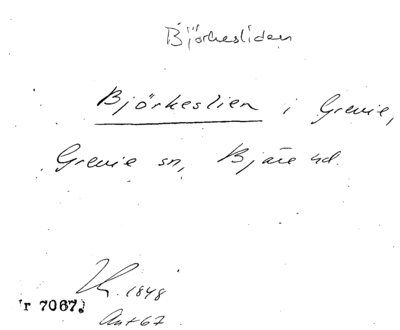 Björkesliden
Björkeslien i Grevie,
Grevie sn, Bjäre hd.
1848
r 7067.
Ant 67